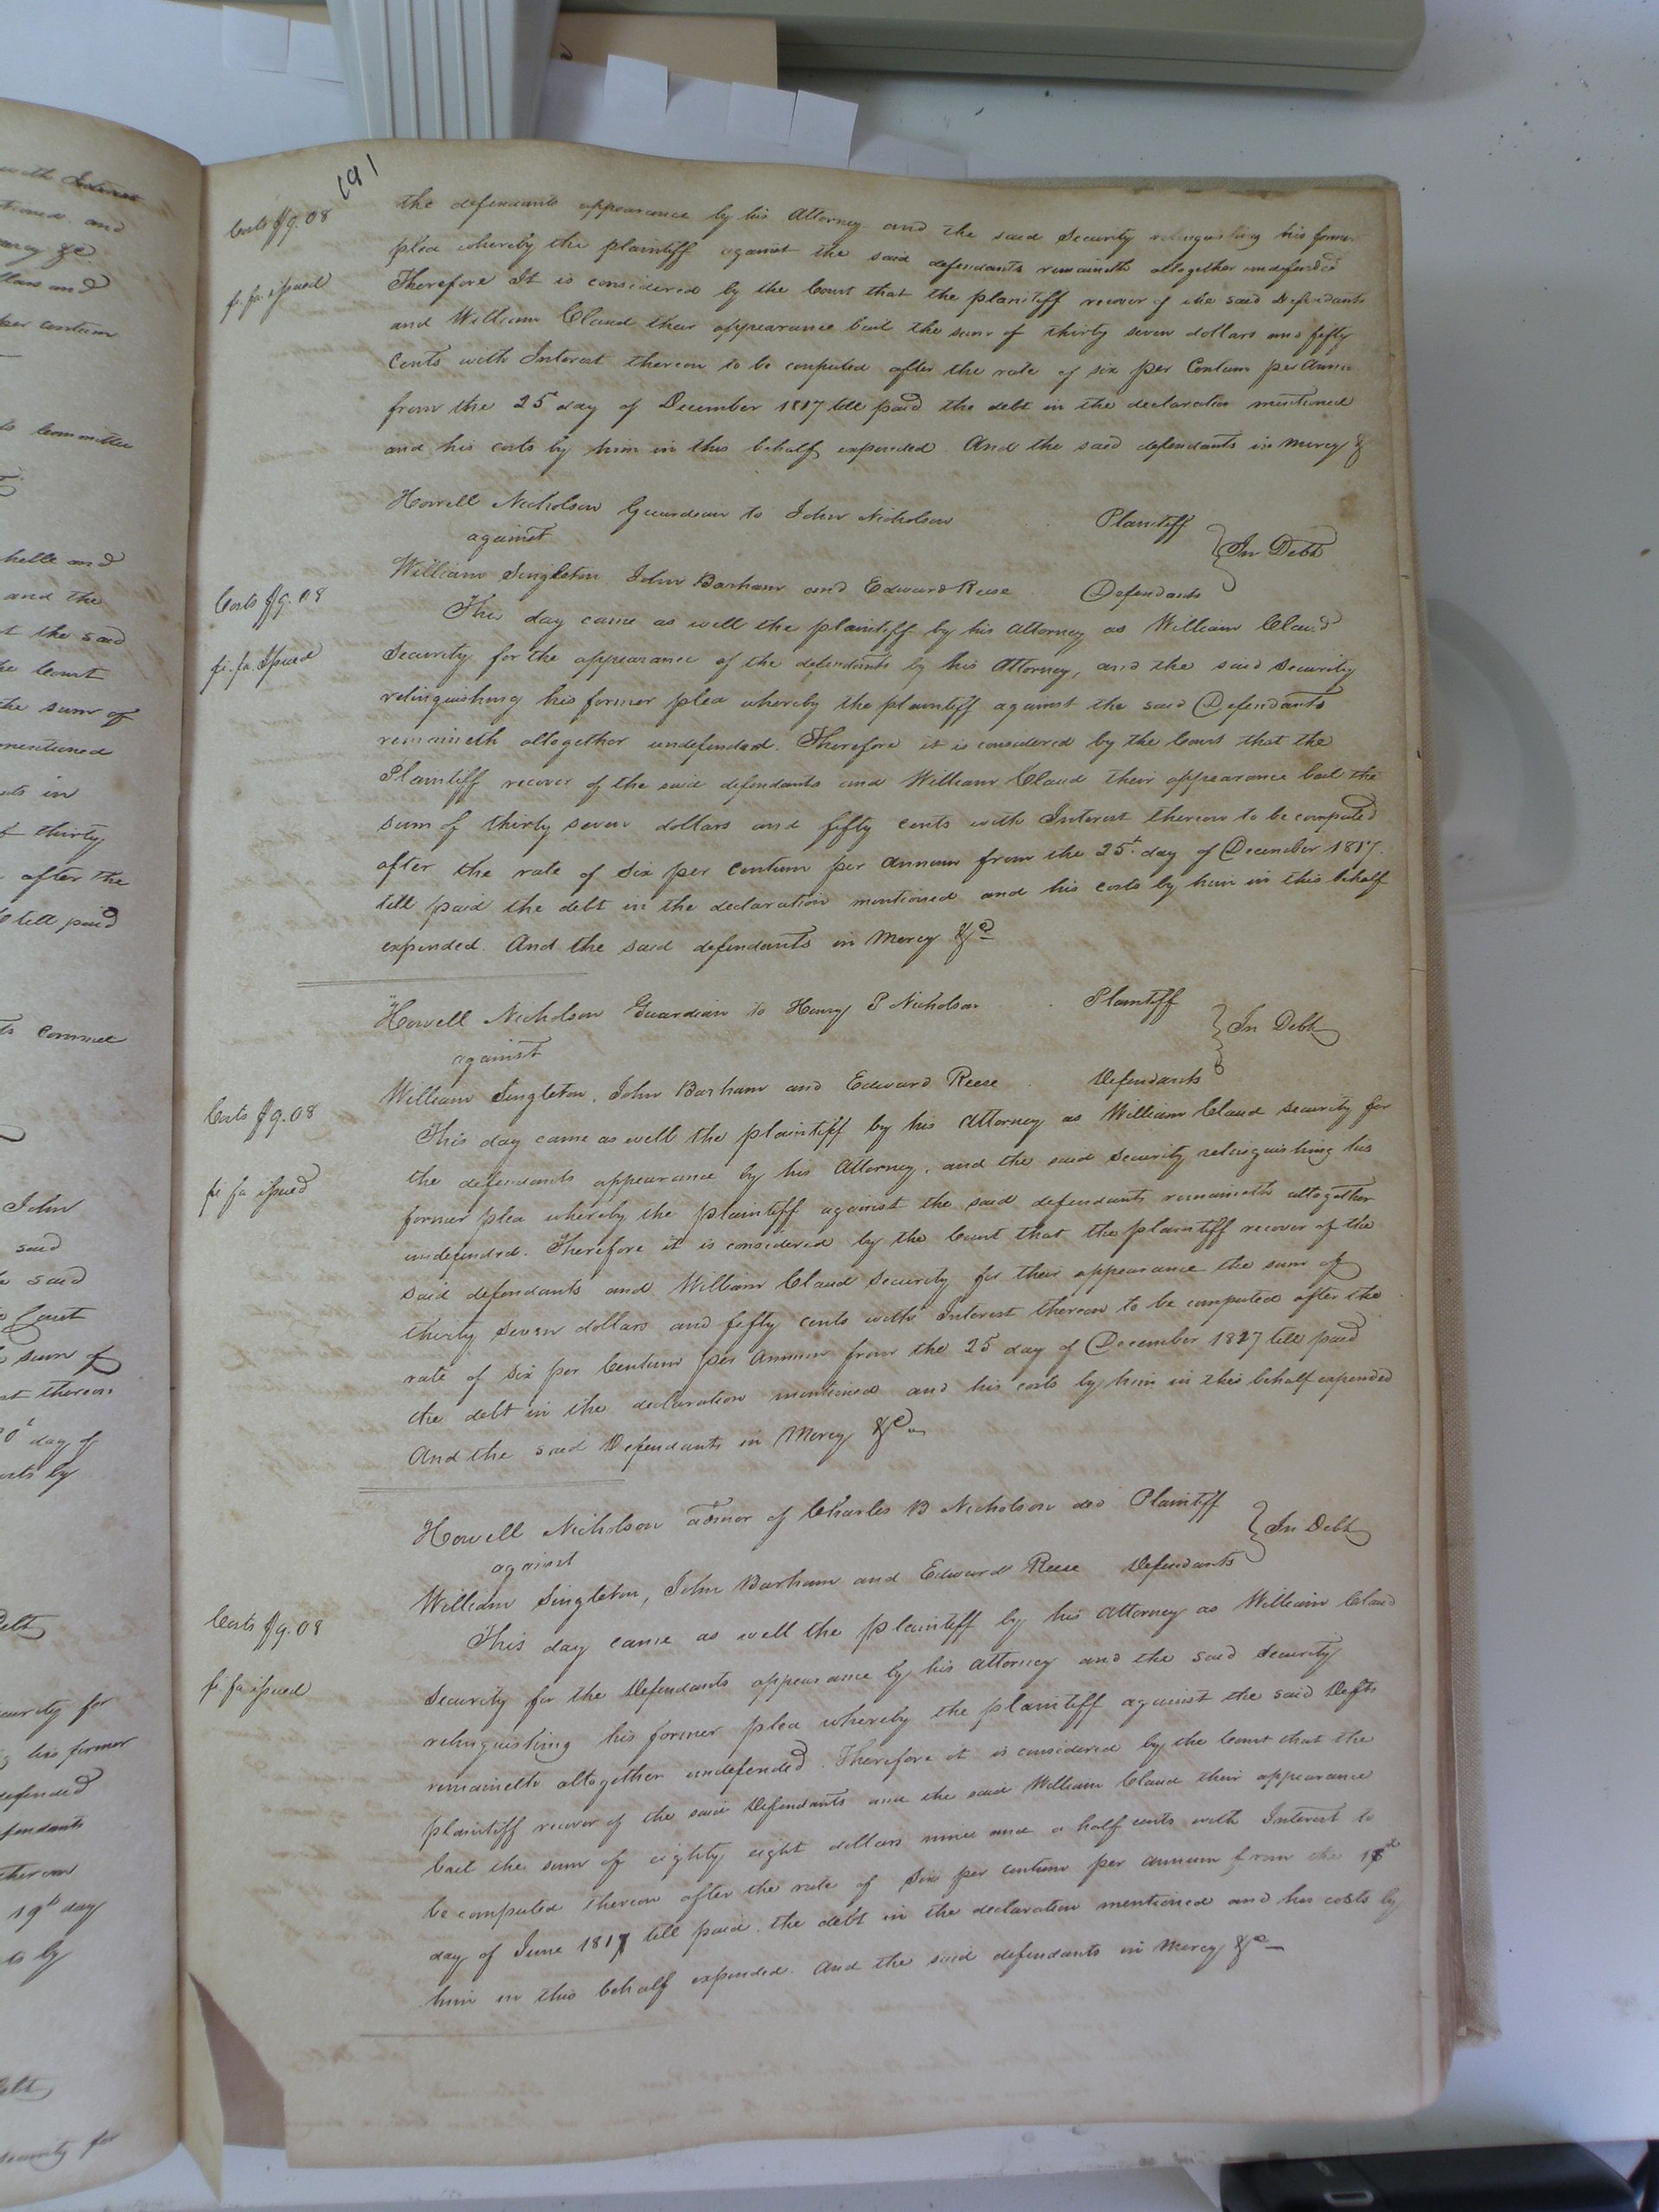 191
Costs $9.08
fi. fa. issued
the defendants appearance by his Attorney and the said Security relinquishing his former
plea whereby the plaintiff against the said defendants remaineth altogether undefended
Therefore It is considered by the Court that the plaintiff recover of the said Defendants
and William Claud their appearance bail the sum of thirty seven dollars and fifty
Cents with Interest thereon to be computed after the rate of six per Centum per Annum
from the 25t day of December 1817 till paid the debt in the declaration mentioned
and his costs by him in this behalf expended And the said defendants in mercy &
Howell Nicholson Guardian to John Nicholson Plaintiff
against } In Debt
William Singleton John Barham and Edward Reese Defendants
Costs $9.08
fi. fa. Issued
This day came as well the plaintiff by his Attorney as William Claud
Security for the appearance of the defendants by his Attorney, and the said Security
relinquishing his former plea whereby the plaintiff against the said Defendants
remaineth altogether undefended. Therefore it is considered by the Court that the
Plaintiff recover of the said defendants and William Claud their appearance bail the
sum of thirty seven dollars and fifty cents with Interest thereon to be computed
after the rate of Six per Centum per Annum from the 25t. day of December 1817.
till paid the debt in the declaration mentioned and his costs by him in this behalf
expended. And the said defendants in Mercy &c
Howell Nicholson Guardian to Henry P Nicholson Plaintiff
against } In Debt
William Singleton, John Barham and Edward Reese Defendants
Costs $9.08
fi fa issued
This day came as well the plaintiff by his Attorney as William Claud Security for
the defendants appearance by his Attorney, and the said Security relinquishing his
former plea whereby the plaintiff against the said defendants remaineth altogether
undefended. Therefore it is considered by the Court that the plaintiff recover of the
said defendants and William Claud Security for their appearance the sum of
thirty Seven dollars and fifty cents with Interest thereon to be computed after the
rate of Six per Centum per Annum from the 25 day of December 1817 till paid
the debt in the declaration mentioned and his costs by him in this behalf expended
And the said Defendants in Mercy &c
Howell Nicholson admor of Charles B Nicholson decd Plaintiff
against } In Debt
William Singleton, John Barham and Edward Reese Defendants
Costs $9.08
fi. fa issued
This day came as well the plaintiff by his attorney as William Claud
Security for the Defendants appearance by his attorney and the said Security
relinquishing his former plea whereby the plaintiff against the said Defts
remaineth altogether undefended. Therefore it is considered by the Court that the
plaintiff recover of the said Defendants and the said William Claud their appearance
bail the sum of eighty eight dollars nine and a half cents with Interest to
be computed thereon after the rate of Six per centum per annum from the
day of June 1817 till paid the debt in the declaration mentioned and his costs by
him in this behalf expended. And the said defendants in Mercy &c